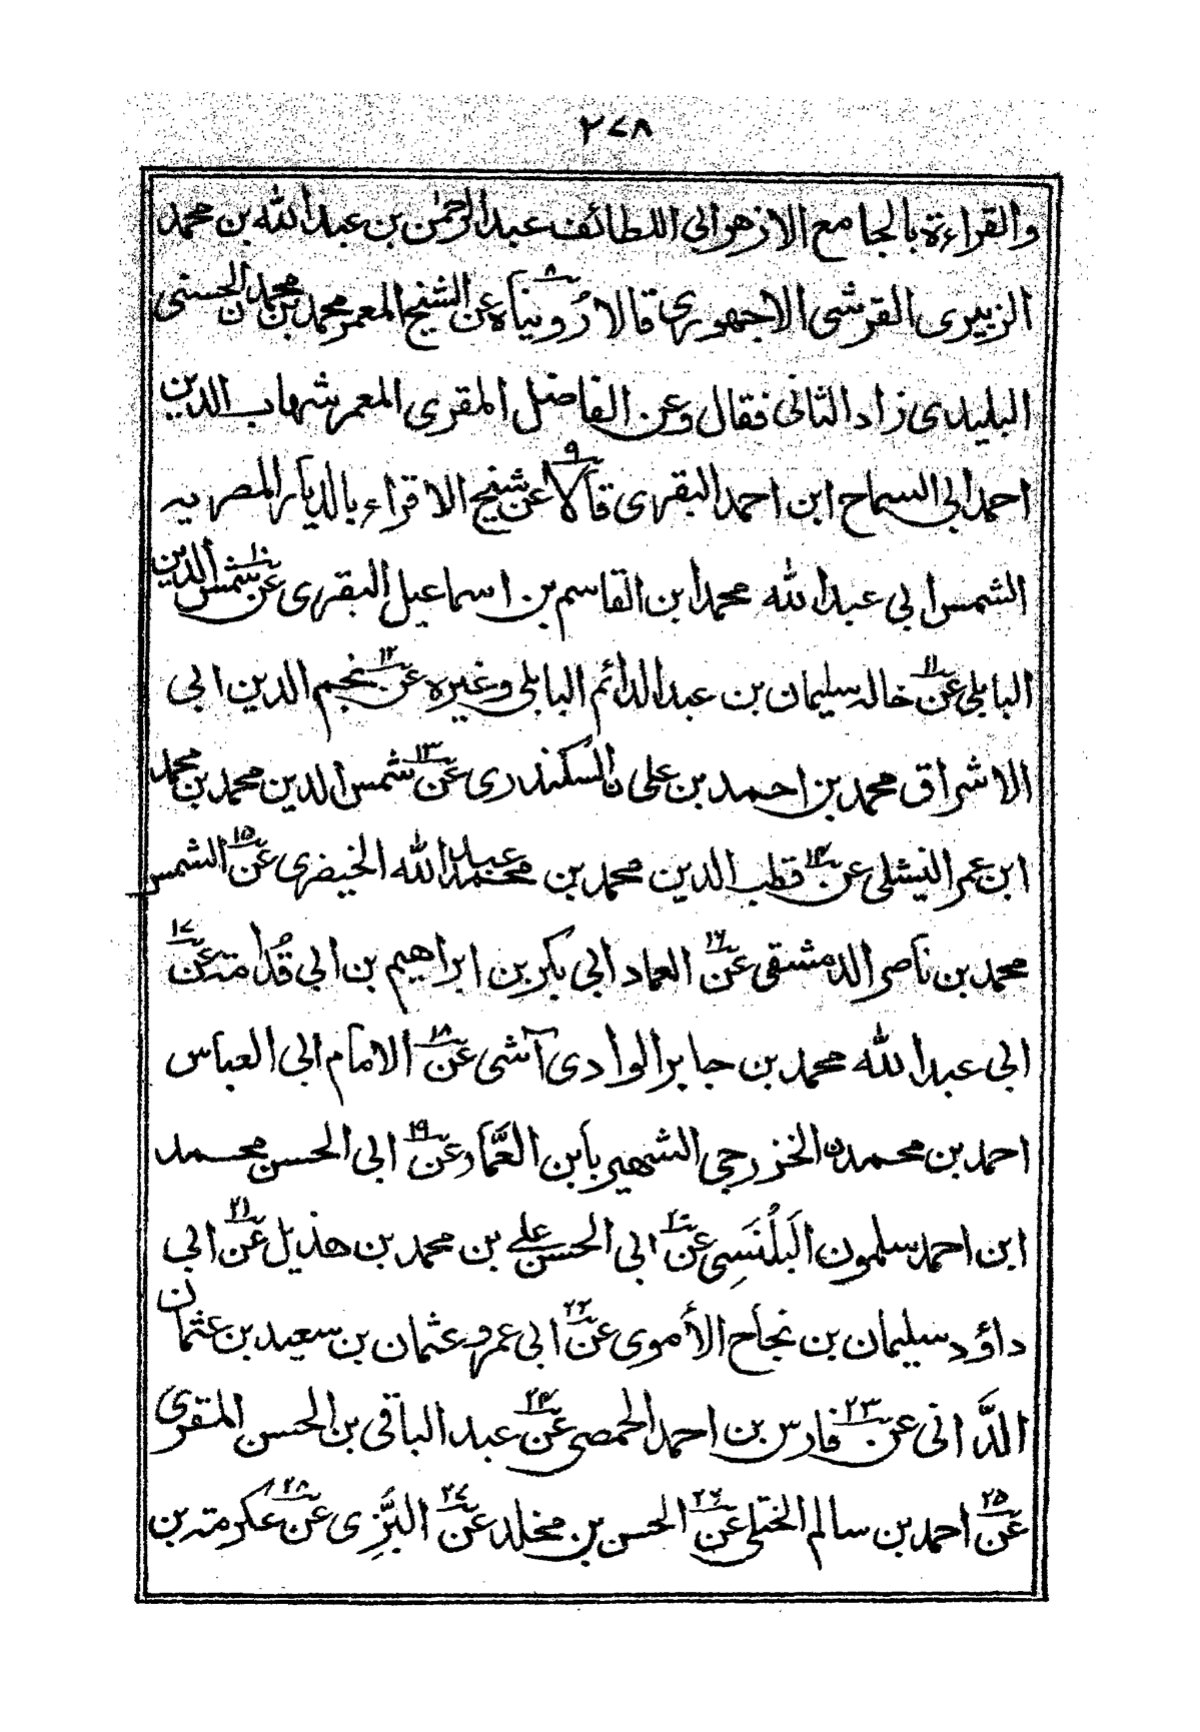 ٢٧٨
والقراءة بالجامع الازهر ابي اللطائف عبد الرحمٰن بن عبد الله بن محمد
الزبيري القرشي الاجهوري قالا رُويناه ٨ عن الشيخ المعمر محمد بن محمد ن الحسنى
البليدى زاد الثانى فقال وعن الفاضل المقرى المعمر شهاب الدين
احمد ابي السماح ابن احمد البقرى قالا ٩ عن شيخ الاقراء بالديار المصريه
الشمس ابي عبد الله محمد ابن القاسم بن اسماعيل البقرى ١٠ عن شمس الدين
البابلى ١١ عن خاله سليمان بن عبد الدائم البابلى وغيره ١٢ عن نجم الدين ابى
الاشراق محمد بن احمد بن على ن السكندرى ١٣ عن شمس الدين محمد بن محمد
ابن عمر النيشلى ١٤ عن قطب الدين محمد بن محمد عبد الله الخيضرى ١٥ عن الشمس
محمد بن ناصر الدمشقى ١٦ عن العماد ابي بكر بن ابراهيم بن ابي قُدامة ١٧ عن
ابي عبد الله محمد بن جابر الوادى آشى ١٨ عن الامام ابي العباس
احمد بن محمد ن الخزرجي الشهير بابن الغَمَّاد ١٩ عن ابي الحسن محمد
ابن احمد سلمون البَلَنْسِي ٢٠ عن ابي الحسن علي بن محمد بن هذيل ٢١ عن ابي
داؤد سليمان بن نجاح الأموى ٢٢ عن ابي عمرو عثمان بن سعيد بن عثمان
الدَّانى ٢٣ عن فارس بن احمد الحمصي ٢٤ عن عبد الباقي بن الحسن المقرى
٢٥ عن احمد بن سالم الختلى ٢٦ عن الحسن بن مخلد ٢٧ عن البَزِّى ٢٨ عن عكرمة بن